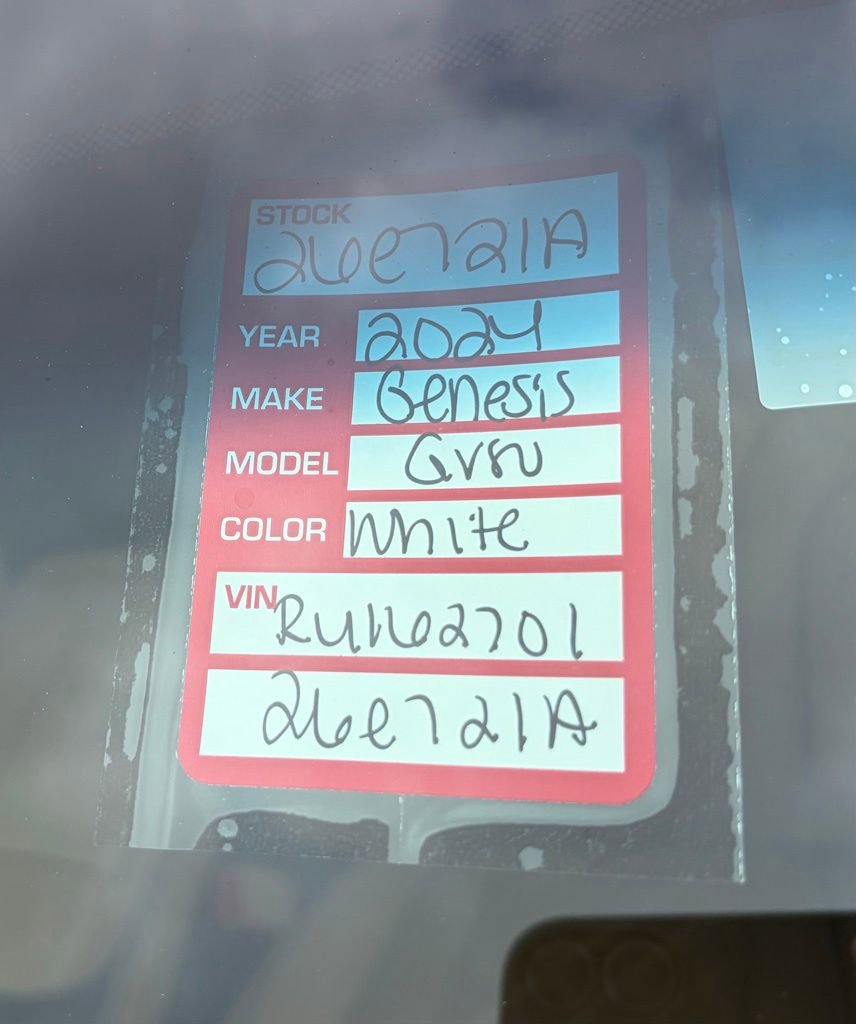 STOCK
26e721A
YEAR 2024
MAKE Genesis
MODEL GV80
COLOR White
VIN RU162701
26e721A